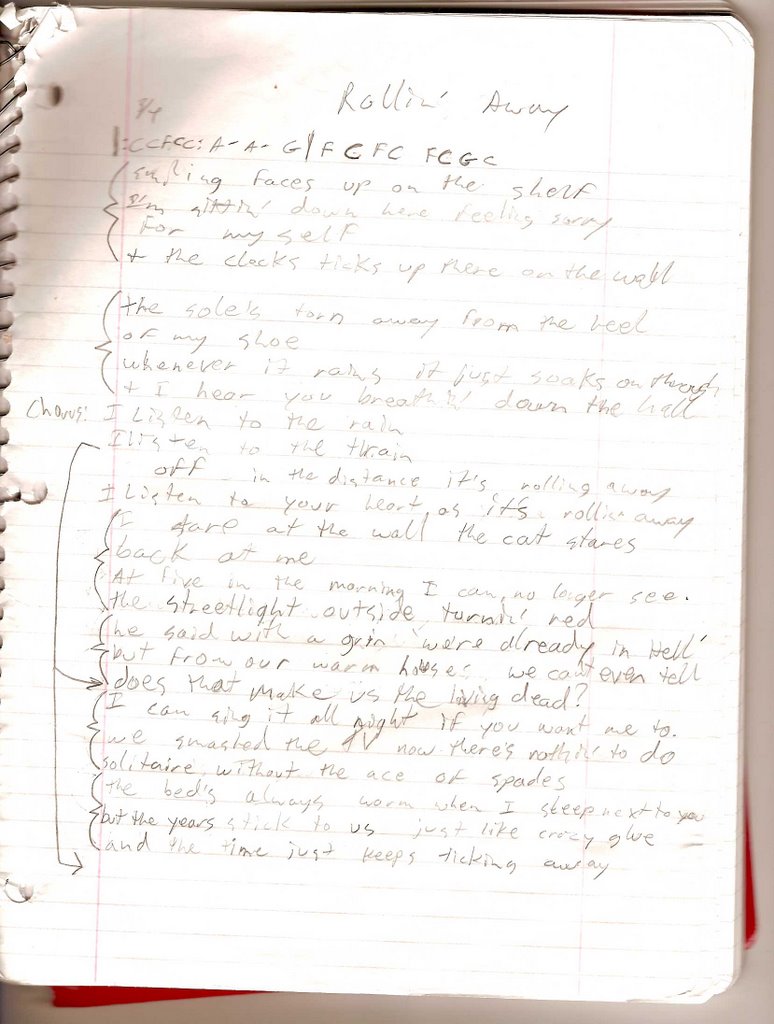 Rollin' Away
3/4
|:CCFCC: A- A- G|F C FC FCGC
smiling faces up on the shelf
I'm sittin' down here feeling sorry
for my self
+ the clocks ticks up there on the wall
the sole is torn away from the heel
of my shoe
whenever it rains it just soaks on through
+ I hear you breathin' down the hall
Chorus: I Listen to the rain
I listen to the train
off in the distance it's rolling away
I Listen to your heart as it's rollin away
I stare at the wall the cat stares
back at me
At five in the morning I can no longer see.
the streetlight outside turnin' red
he said with a grin 'were already in Hell'
but from our warm houses we can't even tell
does that make us the living dead?
I can sing it all night if you want me to.
we smashed the TV now there's nothin' to do
solitaire without the ace of spades
the bed's always warm when I sleep next to you
but the years stick to us just like crazy glue
and the time just keeps ticking away